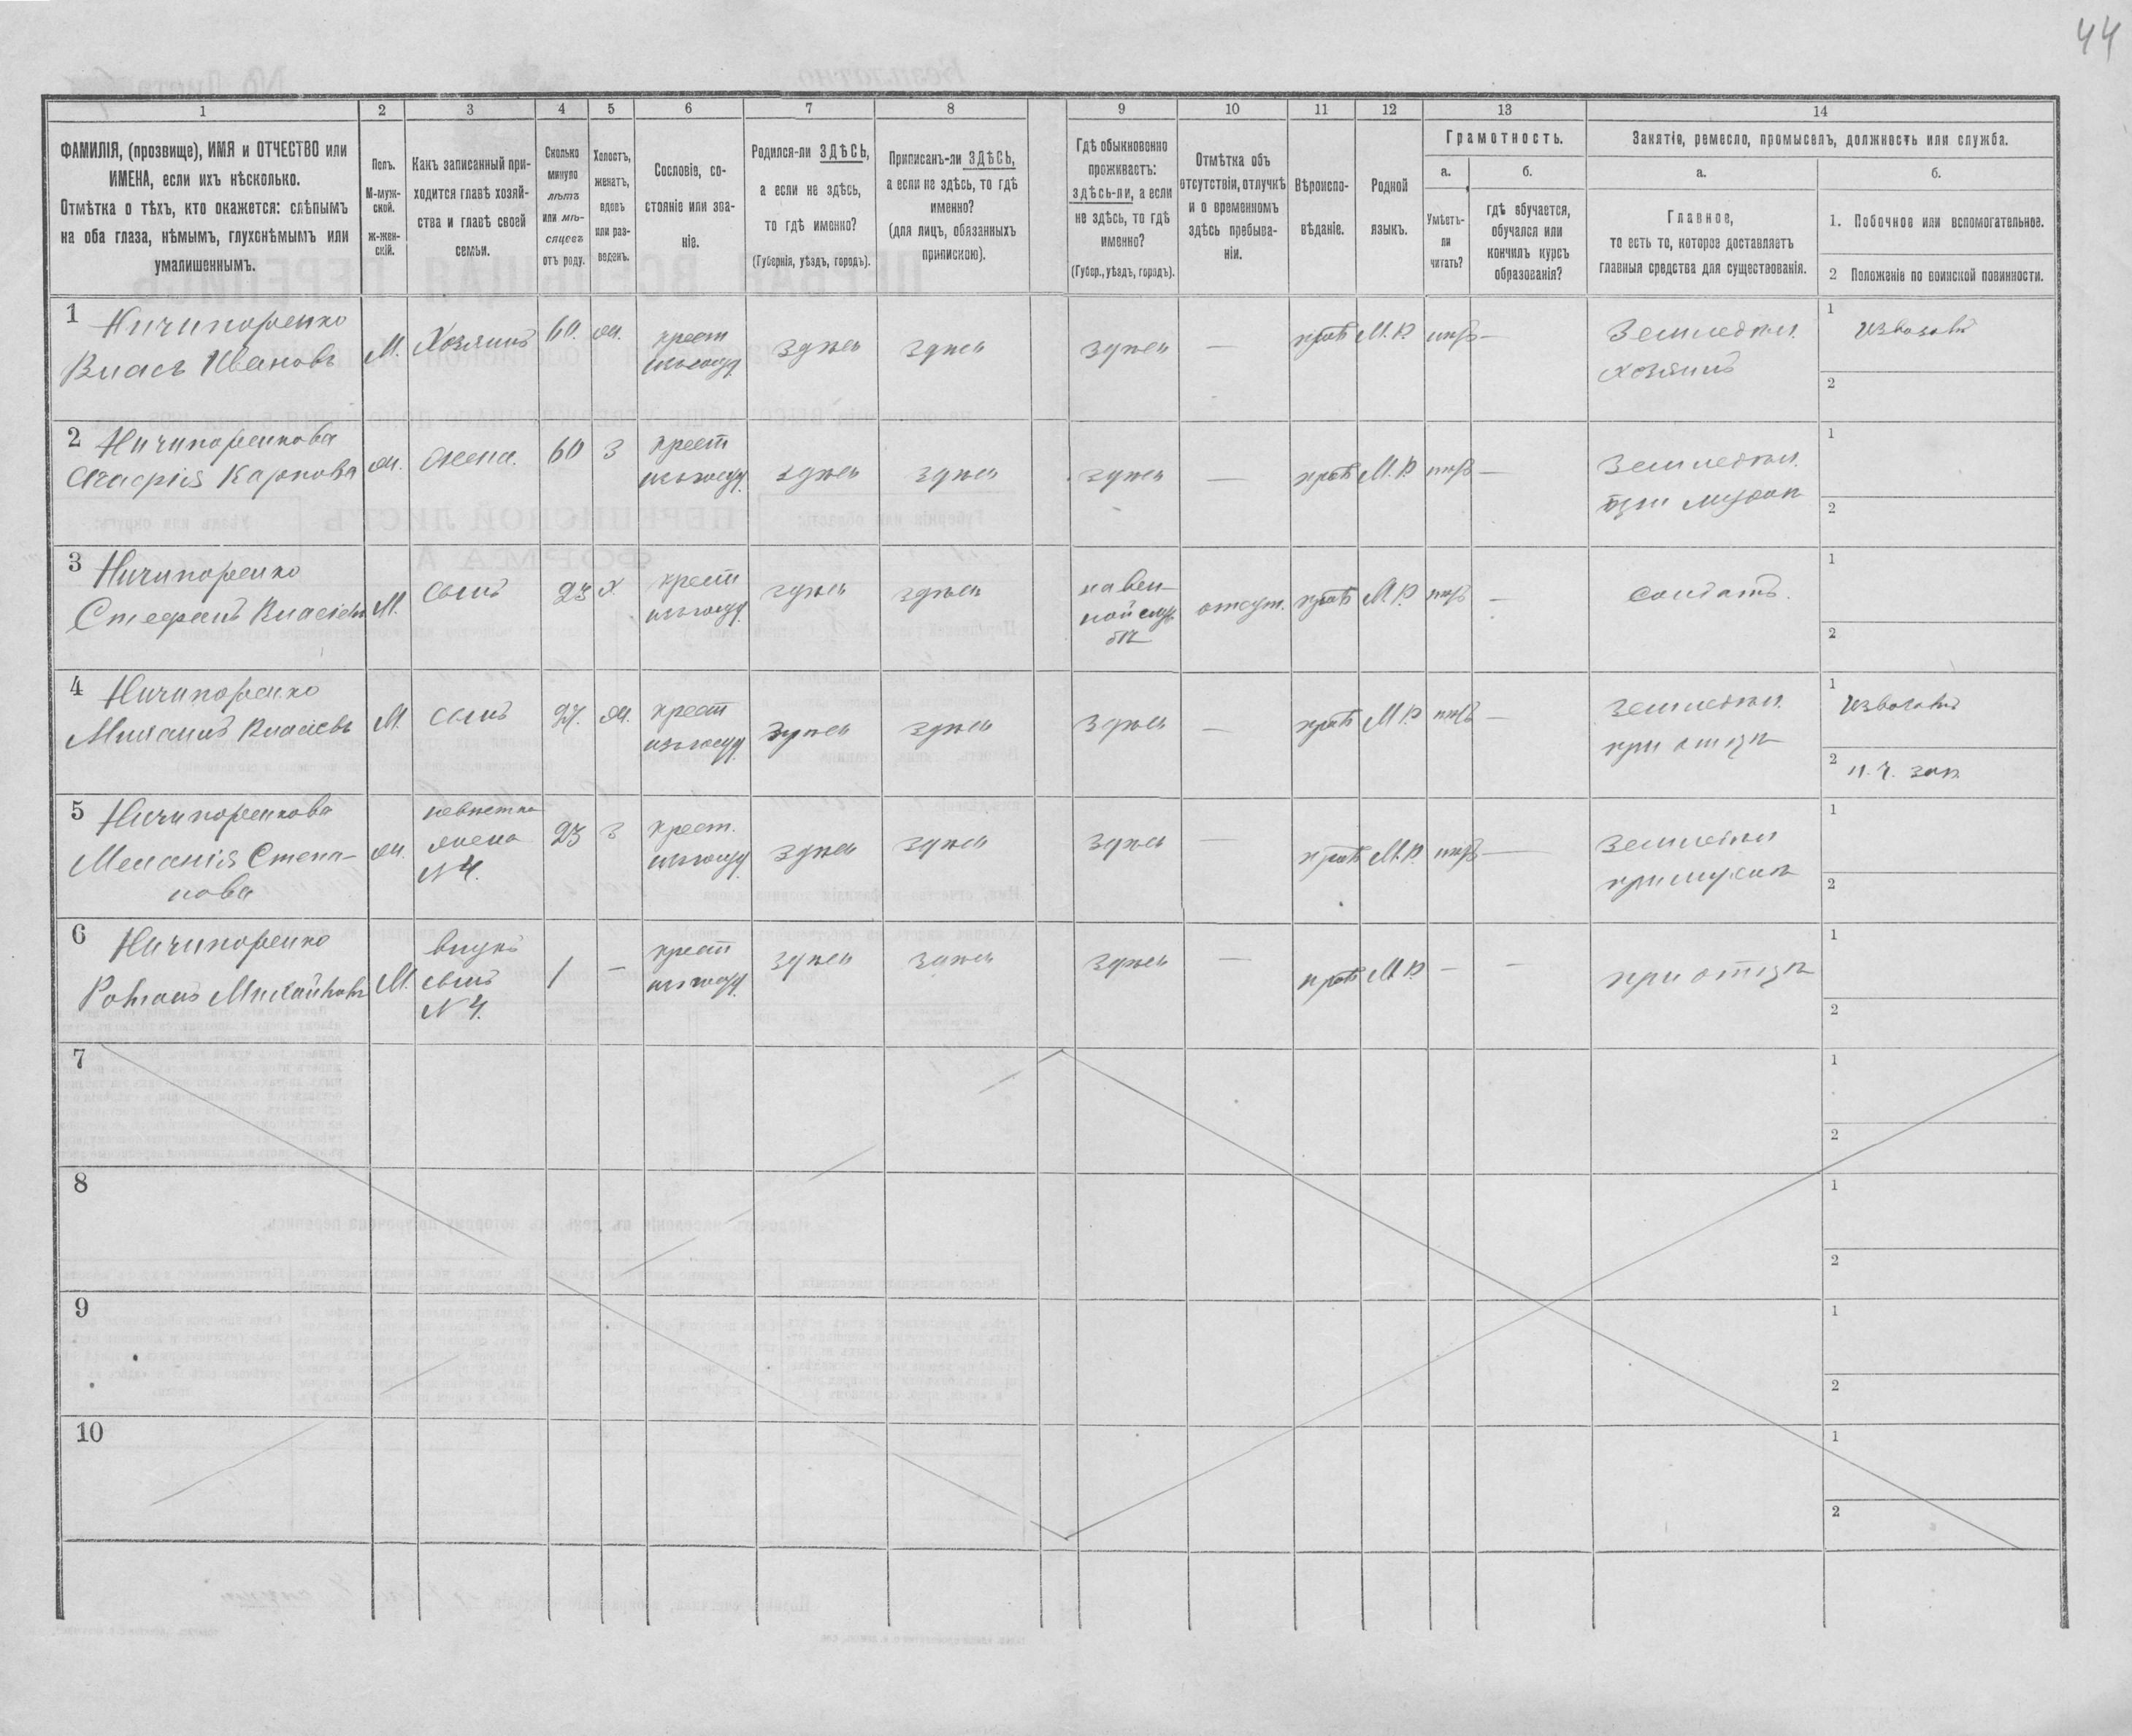 44
1
2
3
4
5
6
7
8
9
10
11
12
13
14
ФАМИЛІЯ, (прозвище), ИМЯ и ОТЧЕСТВО или
ИМЕНА, если ихъ нѣсколько.
Отмѣтка о тѣхъ, кто окажется: слѣпымъ
на оба глаза, нѣмымъ, глухонѣмымъ или
умалишеннымъ.
Полъ.
М-муж-
ской.
ж-жен-
скій.
Какъ записанный при-
ходится главѣ хозяй-
ства и главѣ своей
семьи.
Сколько
минуло
лѣтъ
или мѣ-
сяцевъ
отъ роду.
Холостъ,
женатъ,
вдовъ
или раз-
веденъ.
Сословіе, со-
стояніе или зва-
ніе.
Родился-ли ЗДѢСЬ,
а если не здѣсь,
то гдѣ именно?
(Губернія, уѣздъ, городъ).
Приписанъ-ли ЗДѢСЬ,
а если не здѣсь, то гдѣ
именно?
(для лицъ, обязанныхъ
припискою).
Гдѣ обыкновенно
проживаетъ:
здѣсь-ли, а если
не здѣсь, то гдѣ
именно?
(Губер., уѣздъ, городъ).
Отмѣтка объ
отсутствіи, отлучкѣ
и о временномъ
здѣсь пребыва-
ніи.
Вѣроиспо-
вѣданіе.
Родной
языкъ.
Грамотность.
а.
Умѣетъ-
ли
читать?
б.
гдѣ обучается,
обучался или
кончилъ курсъ
образованія?
Занятіе, ремесло, промыселъ, должность или служба.
а.
Главное,
то есть то, которое доставляетъ
главныя средства для существованія.
б.
1. Побочное или вспомогательное.
2 Положеніе по воинской повинности.
1 Ничипоренко
Власъ Ивановъ
М. Хозяинъ 60. ж. крест
изъ госуд. здѣсь здѣсь здѣсь — прав М.Р. нѣтъ —
Земледѣл.
хозяинъ
1 Извозомъ
2
2 Ничипоренкова
Агафія Карпова
ж. жена. 60 З крест
изъ госуд. здѣсь здѣсь здѣсь — прав М.Р. нѣтъ —
Земледѣл.
при мужѣ
1
2
3 Ничипоренко
Стефанъ Власіевъ
М. сынъ 23 х крест
изъ госуд. здѣсь здѣсь
на воен-
ной служ
бѣ
отсут. прав М.Р. нѣтъ —
солдатъ.
1
2
4 Ничипоренко
Михаилъ Власіевъ
М. сынъ 27. ж. крест
изъ госуд. здѣсь здѣсь здѣсь — прав М.Р. нѣтъ —
земледѣл.
при отцѣ
1 Извозомъ
2 н. ч. зап.
5 Ничипоренкова
Меланія Степа-
нова
ж. невѣстка
жена
N 4.
23 З крест.
изъ госуд. здѣсь здѣсь здѣсь — прав М.Р. нѣтъ —
земледѣл
при мужѣ
1
2
6 Ничипоренко
Романъ Михайловъ
М. внукъ
сынъ
N 4.
1 — крест
изъ госуд. здѣсь здѣсь здѣсь — прав М.Р. — —
при отцѣ
1
2
7
1
2
8
1
2
9
1
2
10
1
2